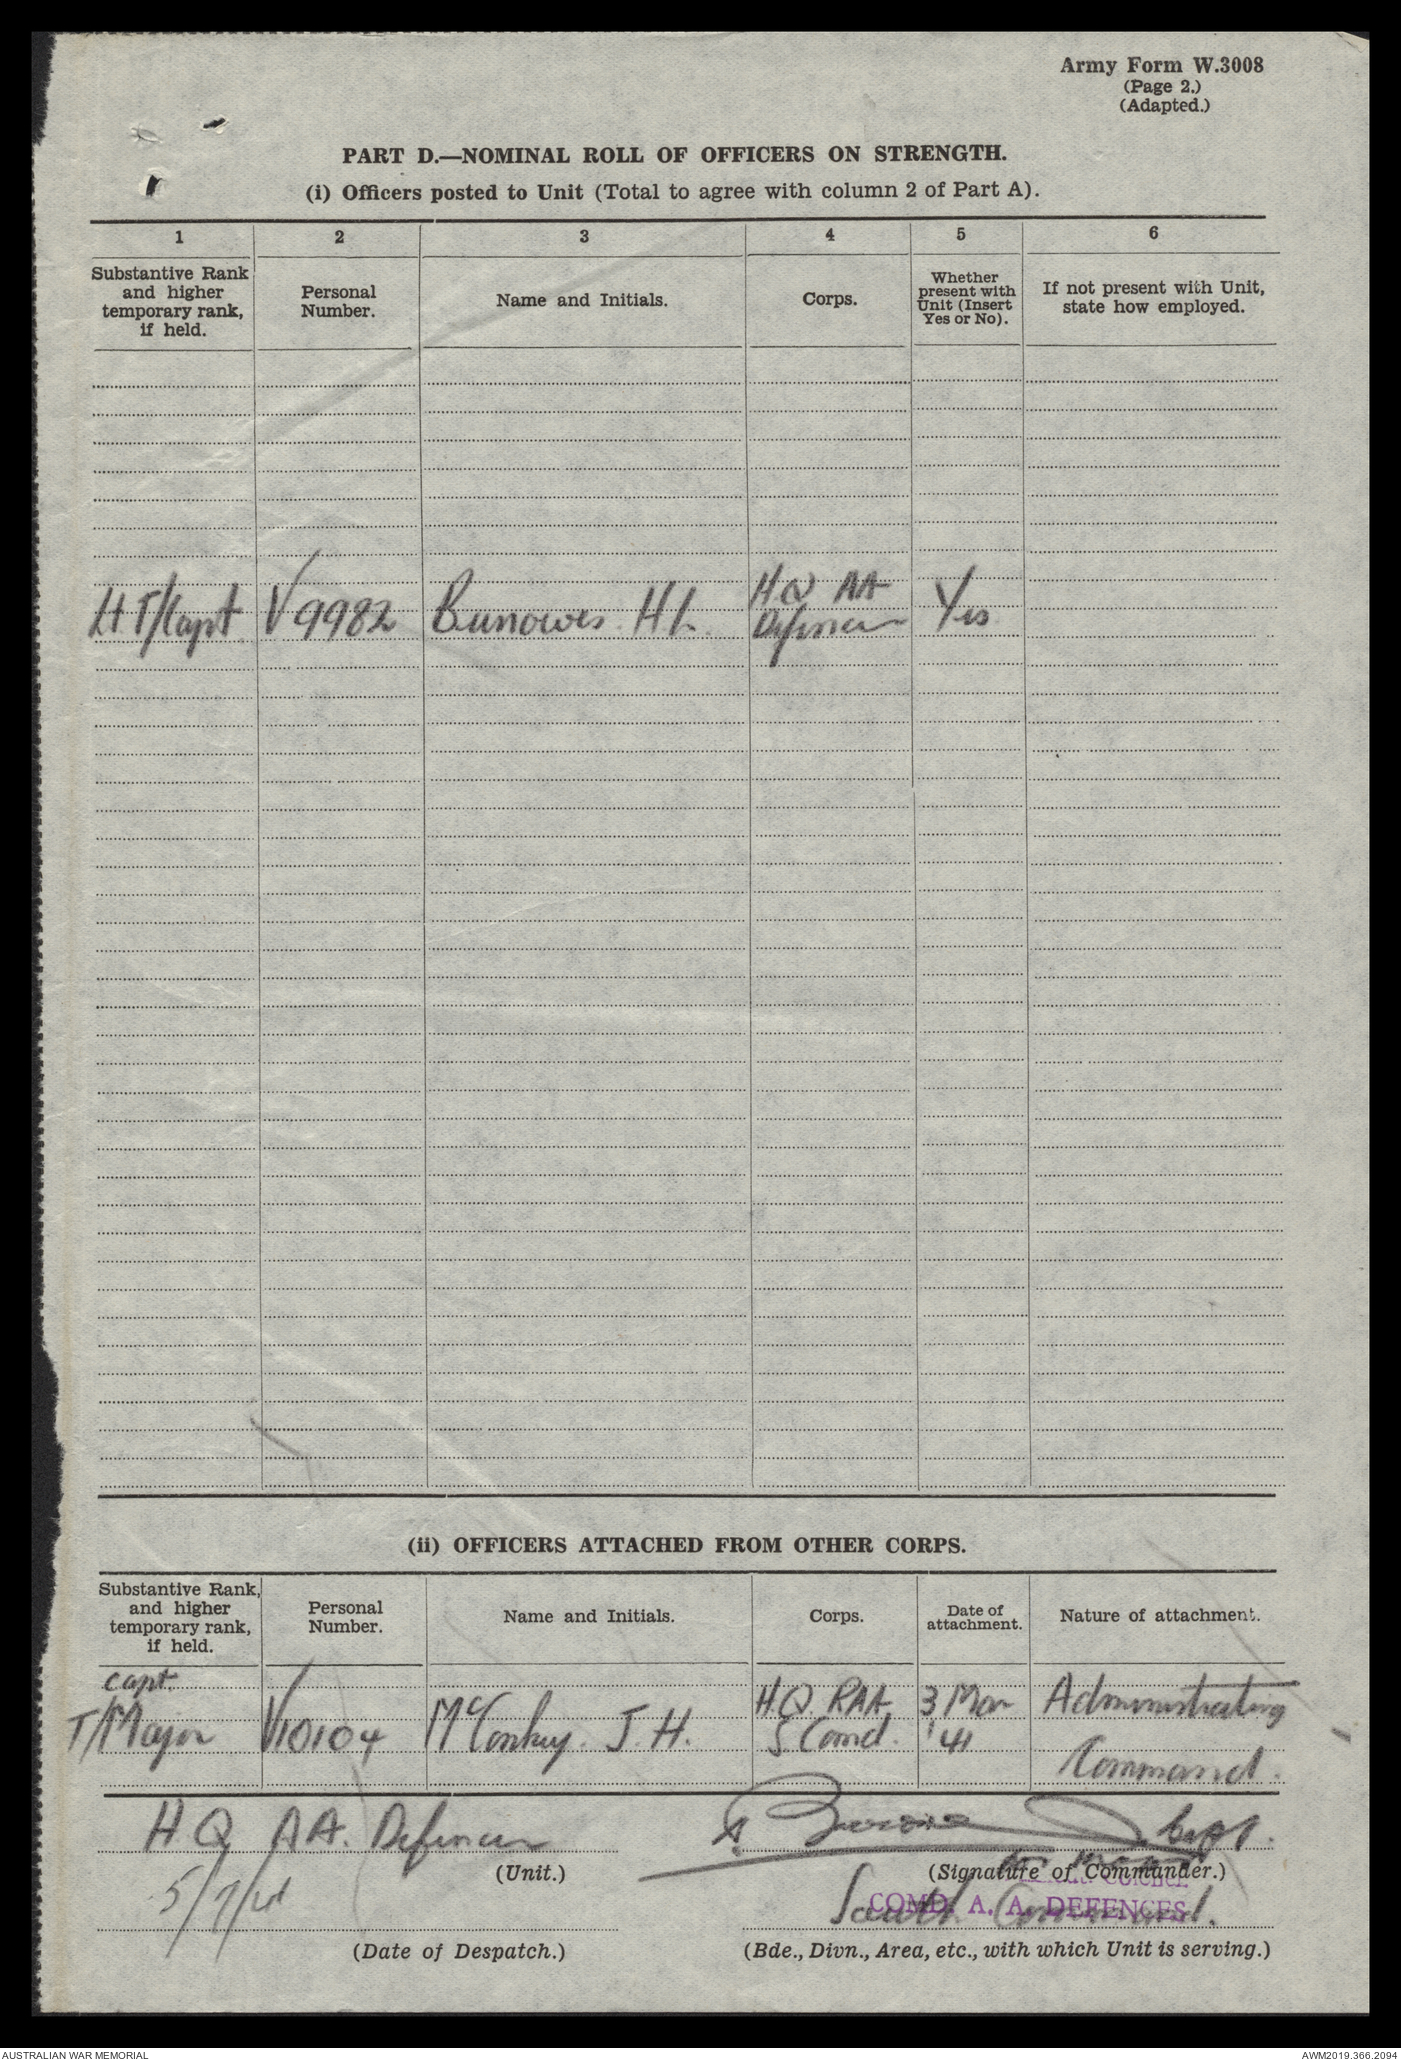 Army Form W.3008
(Page 2.)
(Adapted.)
PART D.—NOMINAL ROLL OF OFFICERS ON STRENGTH.
(i) Officers posted to Unit (Total to agree with column 2 of Part A).
1 2 3 4 5 6
Substantive Rank and higher temporary rank, if held.
Personal Number.
Name and Initials.
Corps.
Whether present with Unit (Insert Yes or No).
If not present with Unit, state how employed.
Lt T/Capt V9982 Burrowes H L H.Q AA Defences Yes
(ii) OFFICERS ATTACHED FROM OTHER CORPS.
Substantive Rank, and higher temporary rank, if held.
Personal Number.
Name and Initials.
Corps.
Date of attachment.
Nature of attachment.
Capt. T/Major V10104 McConkey. J. H. H.Q. RAA S. Comd. 3 Mar '41 Administrating Command.
H.Q AA. Defences
Capt.
(Unit.)
(Signature of Commander.)
5/7/41
South Command.
COMD. A. A. DEFENCES
(Date of Despatch.)
(Bde., Divn., Area, etc., with which Unit is serving.)
AUSTRALIAN WAR MEMORIAL
AWM2019.366.2094